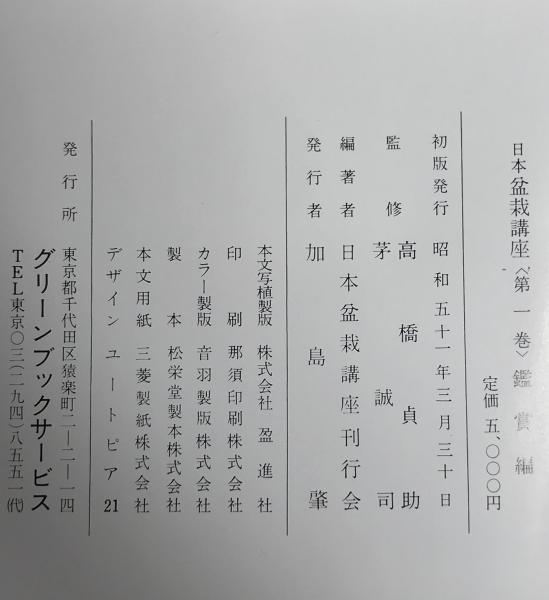 日本盆栽講座〈第一巻〉鑑賞編
定価 五、〇〇〇円
初版発行 昭和五十一年三月三十日
監修 高橋貞助
茅誠司
編著者 日本盆栽講座刊行会
発行者 加島肇
本文写植製版 株式会社 盈進社
印刷 那須印刷株式会社
カラー製版 音羽製版株式会社
製本 松栄堂製本株式会社
本文用紙 三菱製紙株式会社
デザイン ユートピア21
発行所 東京都千代田区猿楽町二―二―一四
グリーンブックサービス
TEL東京〇三(二九四)八五五一(代)